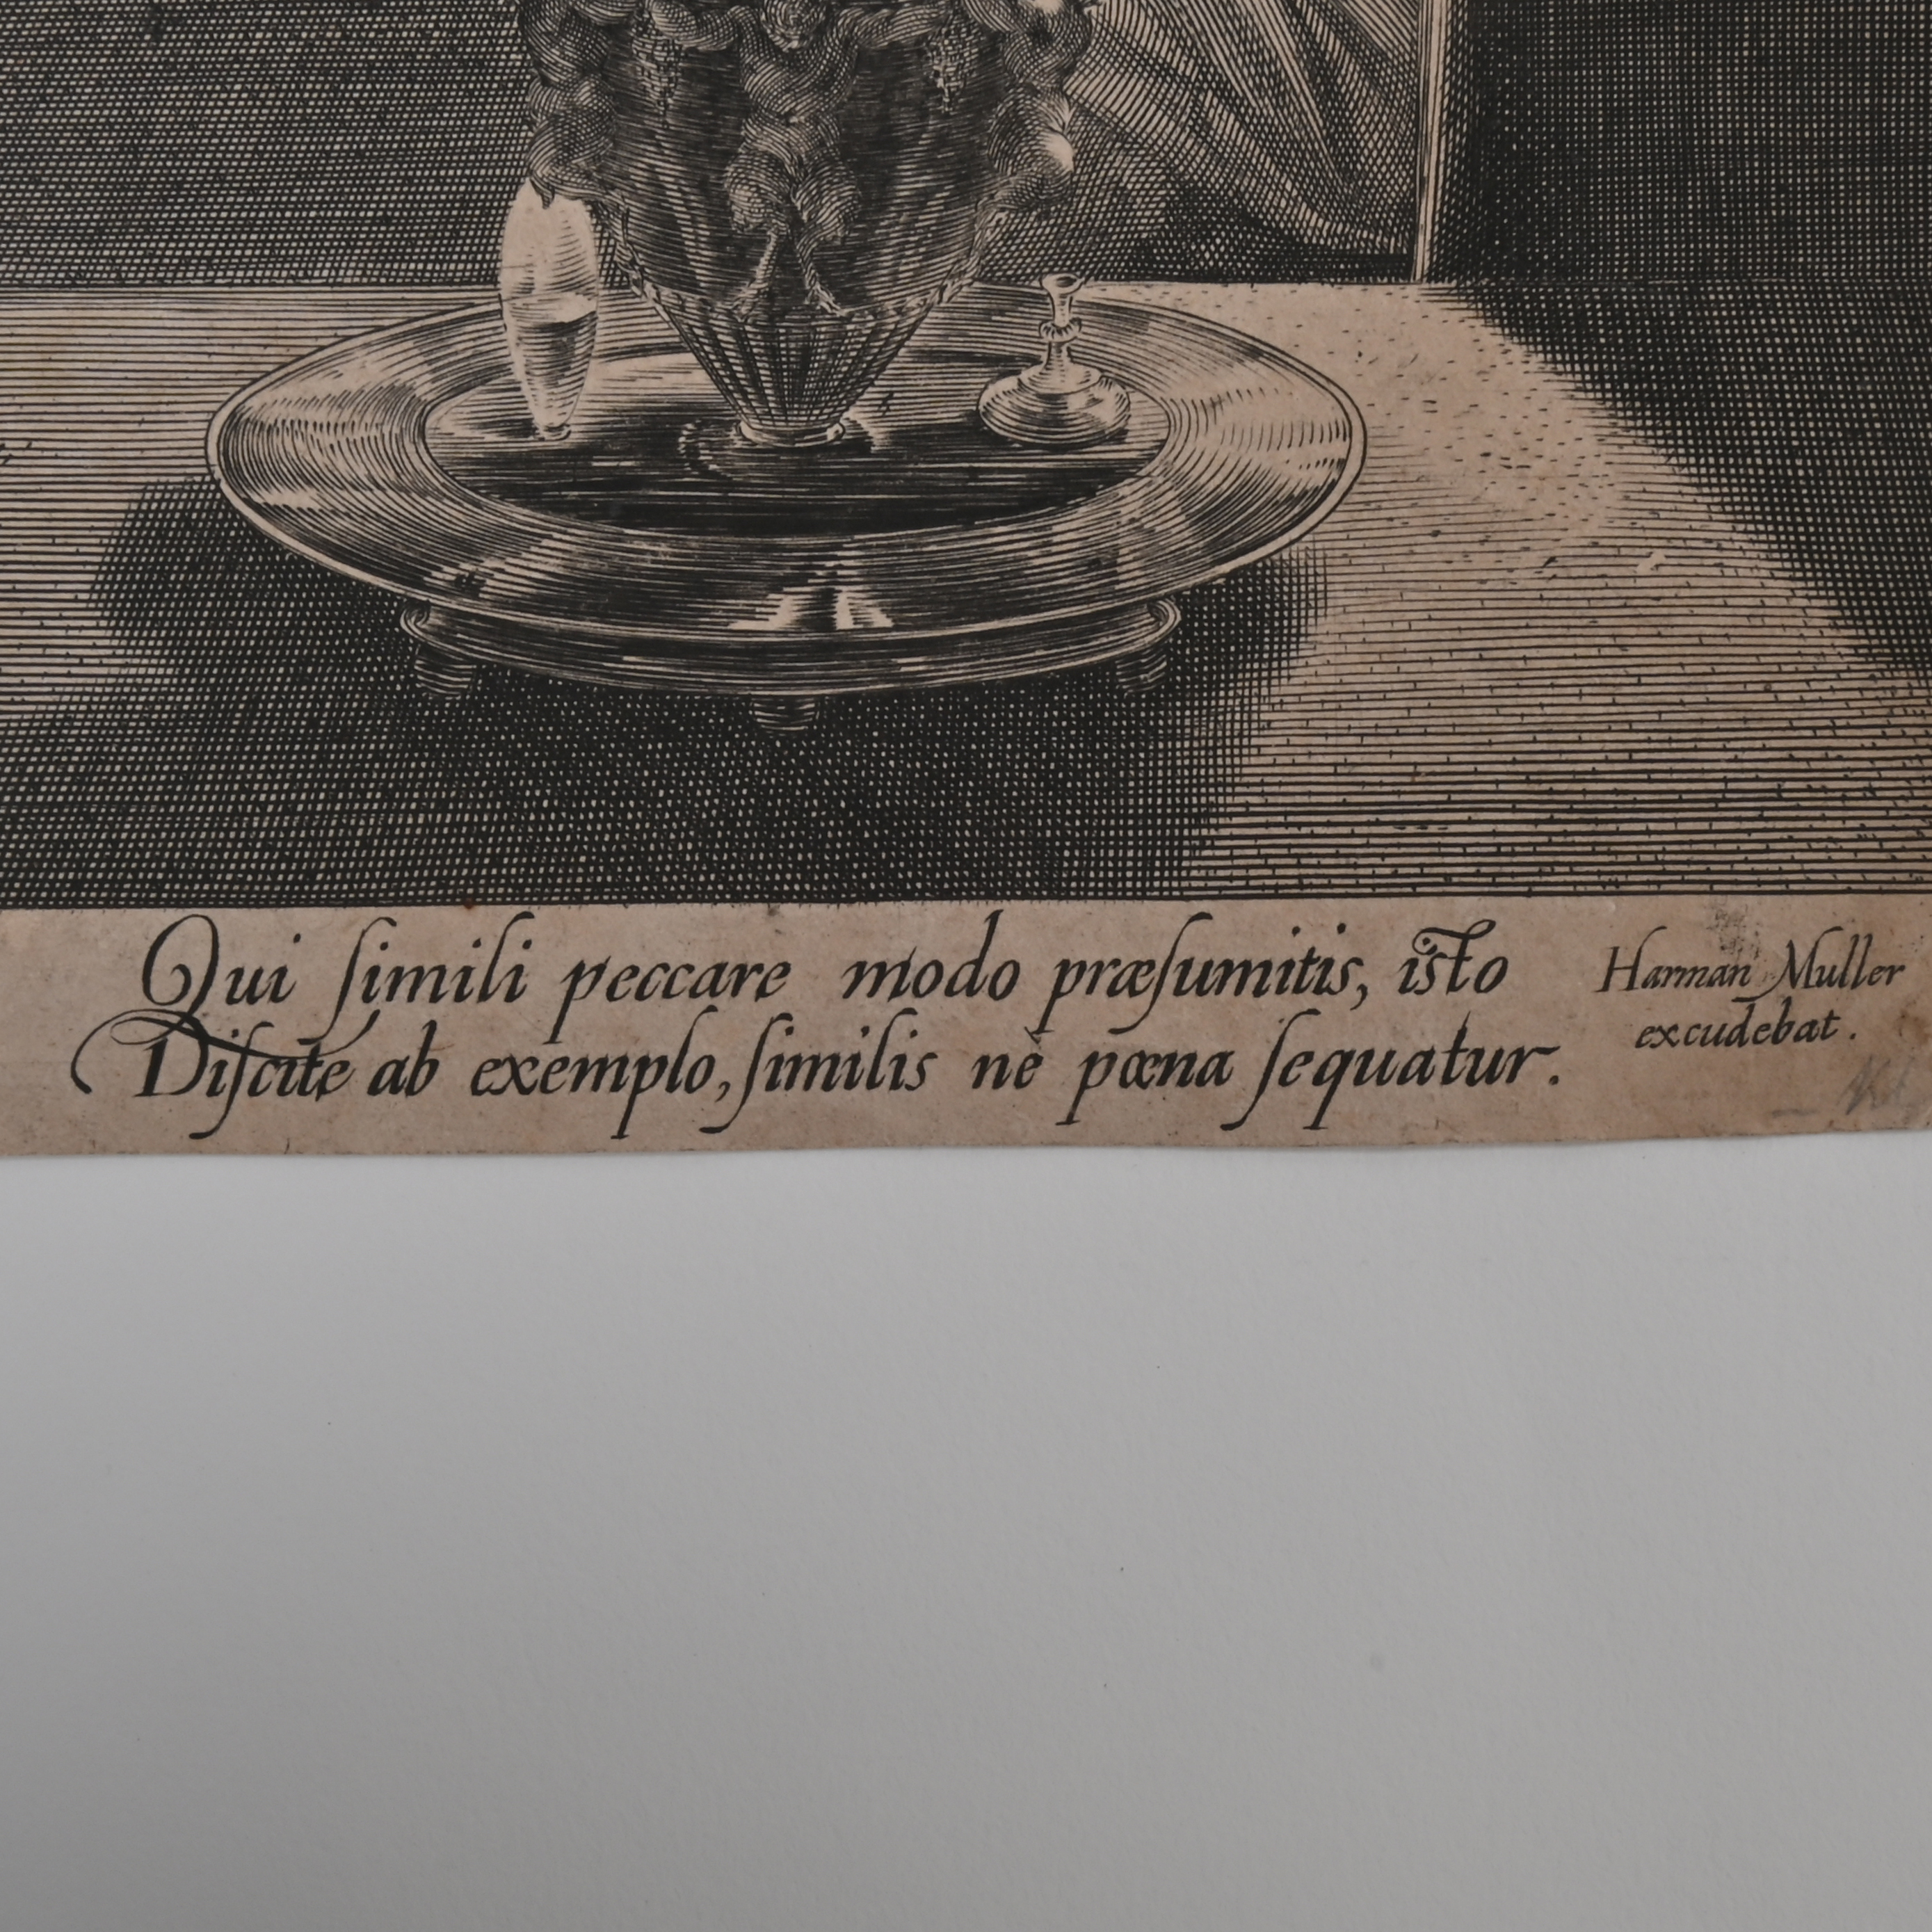 Qui ſimili peccare modo præſumitis, isto
Diſcite ab exemplo, ſimilis nè pœna ſequatur.
Harman Muller
excudebat.